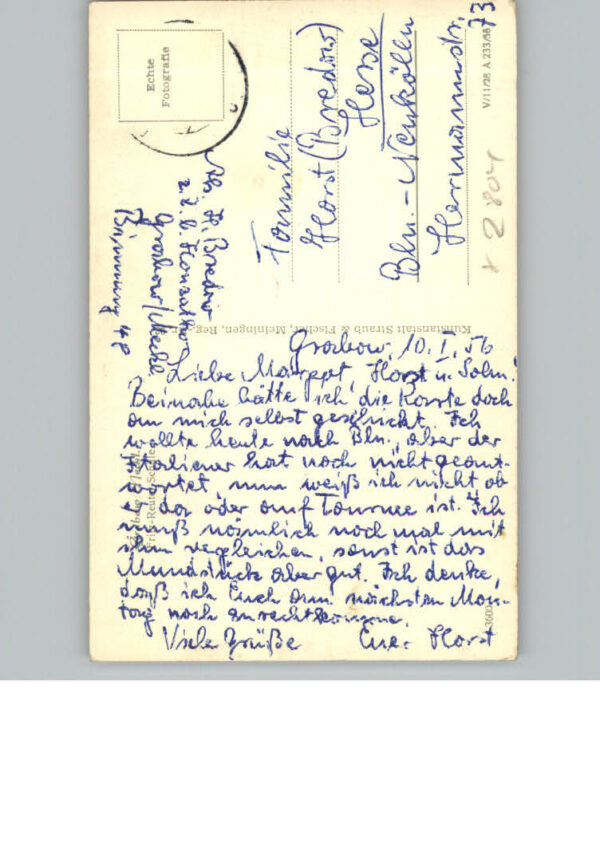 Echte
Fotografie
Abs. H. Bredow
z. Z. b. Honzatko
Grabow/Meckl.
Binnung 48
Familie
Horst (Bredow)
Hesse
Bln.-Neukölln
Hermannstr.
73
V/11/28 A 233/58
2804
Kunstanstalt Straub & Fischer, Meiningen, Reg.
Grabow, 10.I.56
Liebe Margot, Horst u. Sohn!
Beinahe hätte ich die Karte doch
an mich selbst geschickt. Ich
wollte heute nach Bln., aber der
Italiener hat noch nicht geant-
wortet, nun weiß ich nicht ob
er da oder auf Tournee ist. Ich
muß nämlich noch mal mit
ihm vergleichen, sonst ist das
Mundstück aber gut. Ich denke,
daß ich Euch am nächsten Mon-
tag noch zurechtkomme.
Viele Grüße Euer Horst
Fritz-Reuter-Schule